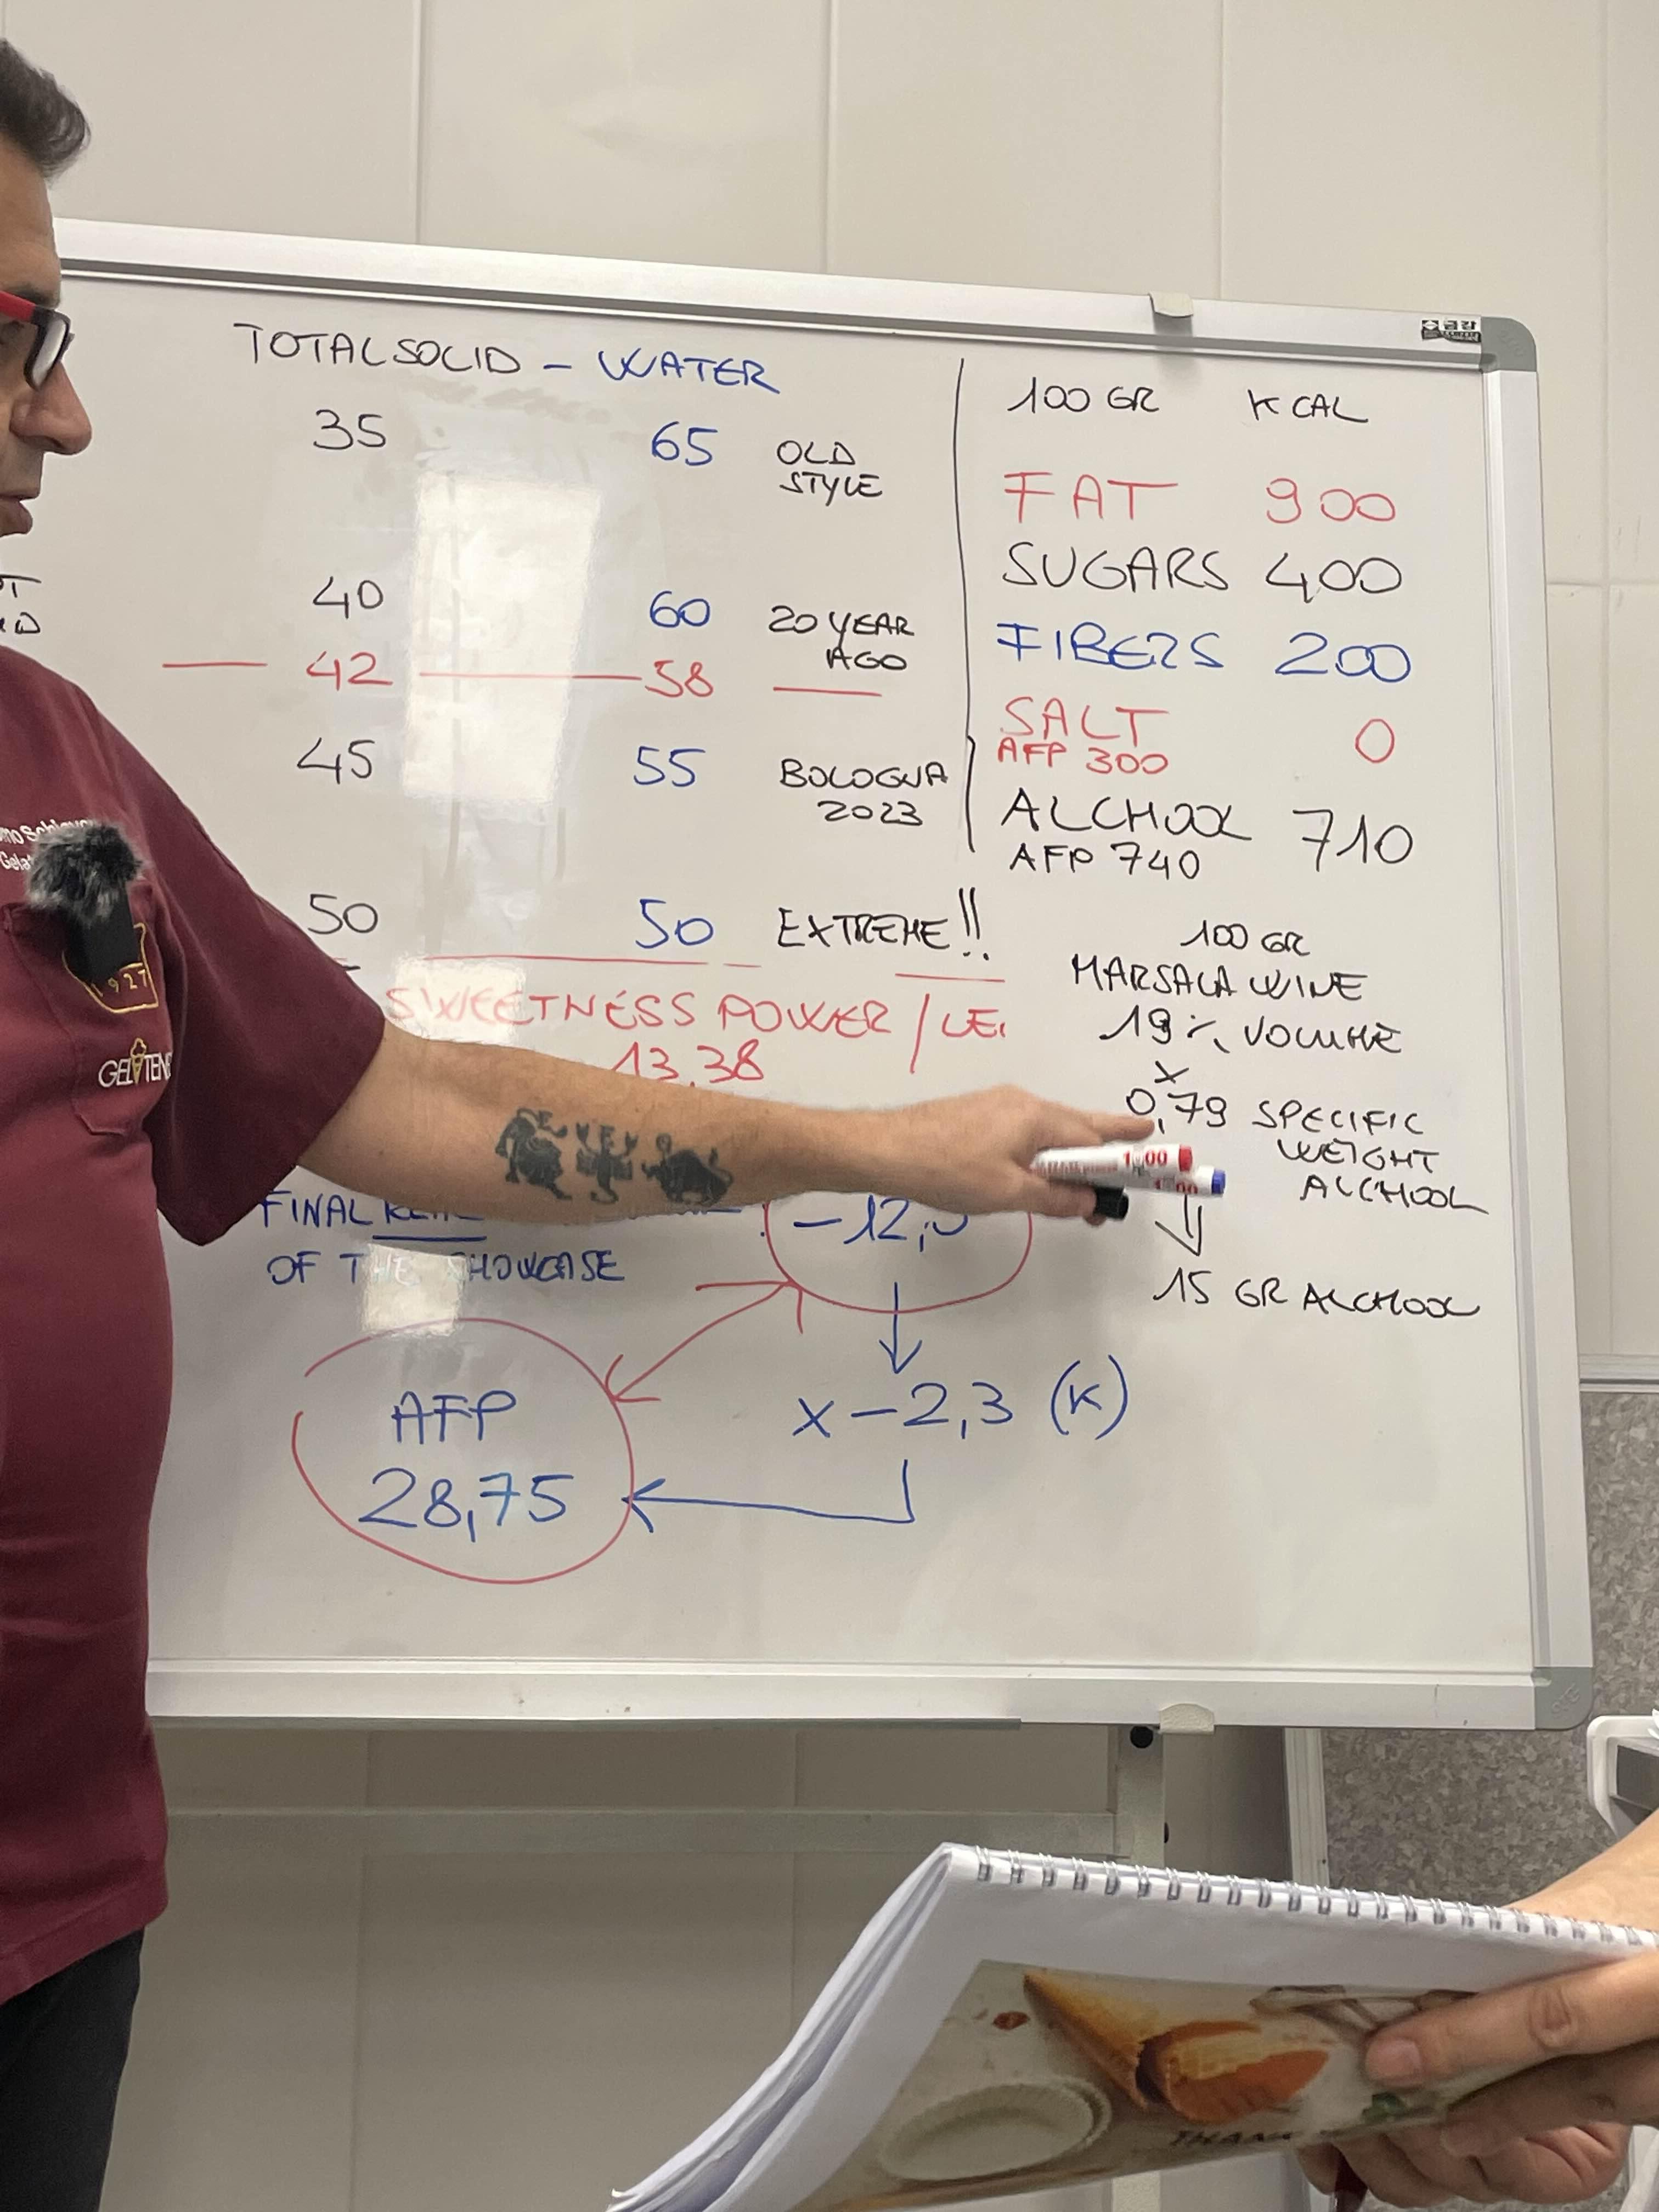 TOTAL SOLID - WATER
35 65 OLD
STYLE
40 60 20 YEAR
AGO
42 58
45 55 BOLOGNA
2023
50 50 EXTREME!!
SWEETNESS POWER /
13,38
FINAL
OF THE SHOWCASE
-12,
x-2,3 (K)
AFP
28,75
100 GR KCAL
FAT 900
SUGARS 400
FIBERS 200
SALT 0
AFP 300
ALCHOOL 710
AFP 740
100 GR
MARSALA WINE
19% VOLUME
x
0,79 SPECIFIC
WEIGHT
ALCHOOL
15 GR ALCHOOL
1927
금강